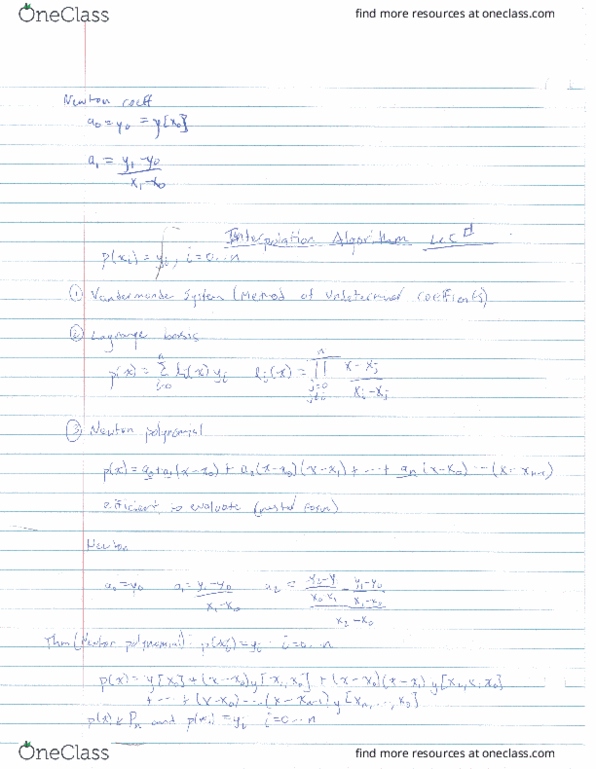 OneClass
find more resources at oneclass.com
Newton coeff
a₀ = y₀ = y[x₀]
a₁ = (y₁ - y₀) / (x₁ - x₀)
Interpolation Algorithm Lec
p(xᵢ) = yᵢ, i = 0 ... n
① Vandermonde System (Method of Undetermined coefficients)
② Lagrange basis
p(x) = Σᵢ₌₀ⁿ lᵢ(x) yᵢ lᵢ(x) = ∏ⱼ₌₀, ⱼ≠ᵢⁿ (x - xⱼ) / (xᵢ - xⱼ)
③ Newton polynomial
p(x) = a₀ + a₁(x - x₀) + a₂(x - x₀)(x - x₁) + ... + aₙ(x - x₀) ... (x - xₙ₋₁)
efficient to evaluate (nested form)
Newton
a₀ = y₀ a₁ = (y₁ - y₀) / (x₁ - x₀) a₂ =
x₂ - x₀
Thm (Newton polynomial): p(xᵢ) = yᵢ i = 0 ... n
p(x) = y[x₀] + (x - x₀) y[x₁, x₀] + (x - x₀)(x - x₁) y[x₂, x₁, x₀]
+ ... + (x - x₀) ... (x - xₙ₋₁) y[xₙ, ..., x₀]
p(x) ∈ Pₙ and p(xᵢ) = yᵢ i = 0 ... n
OneClass
find more resources at oneclass.com